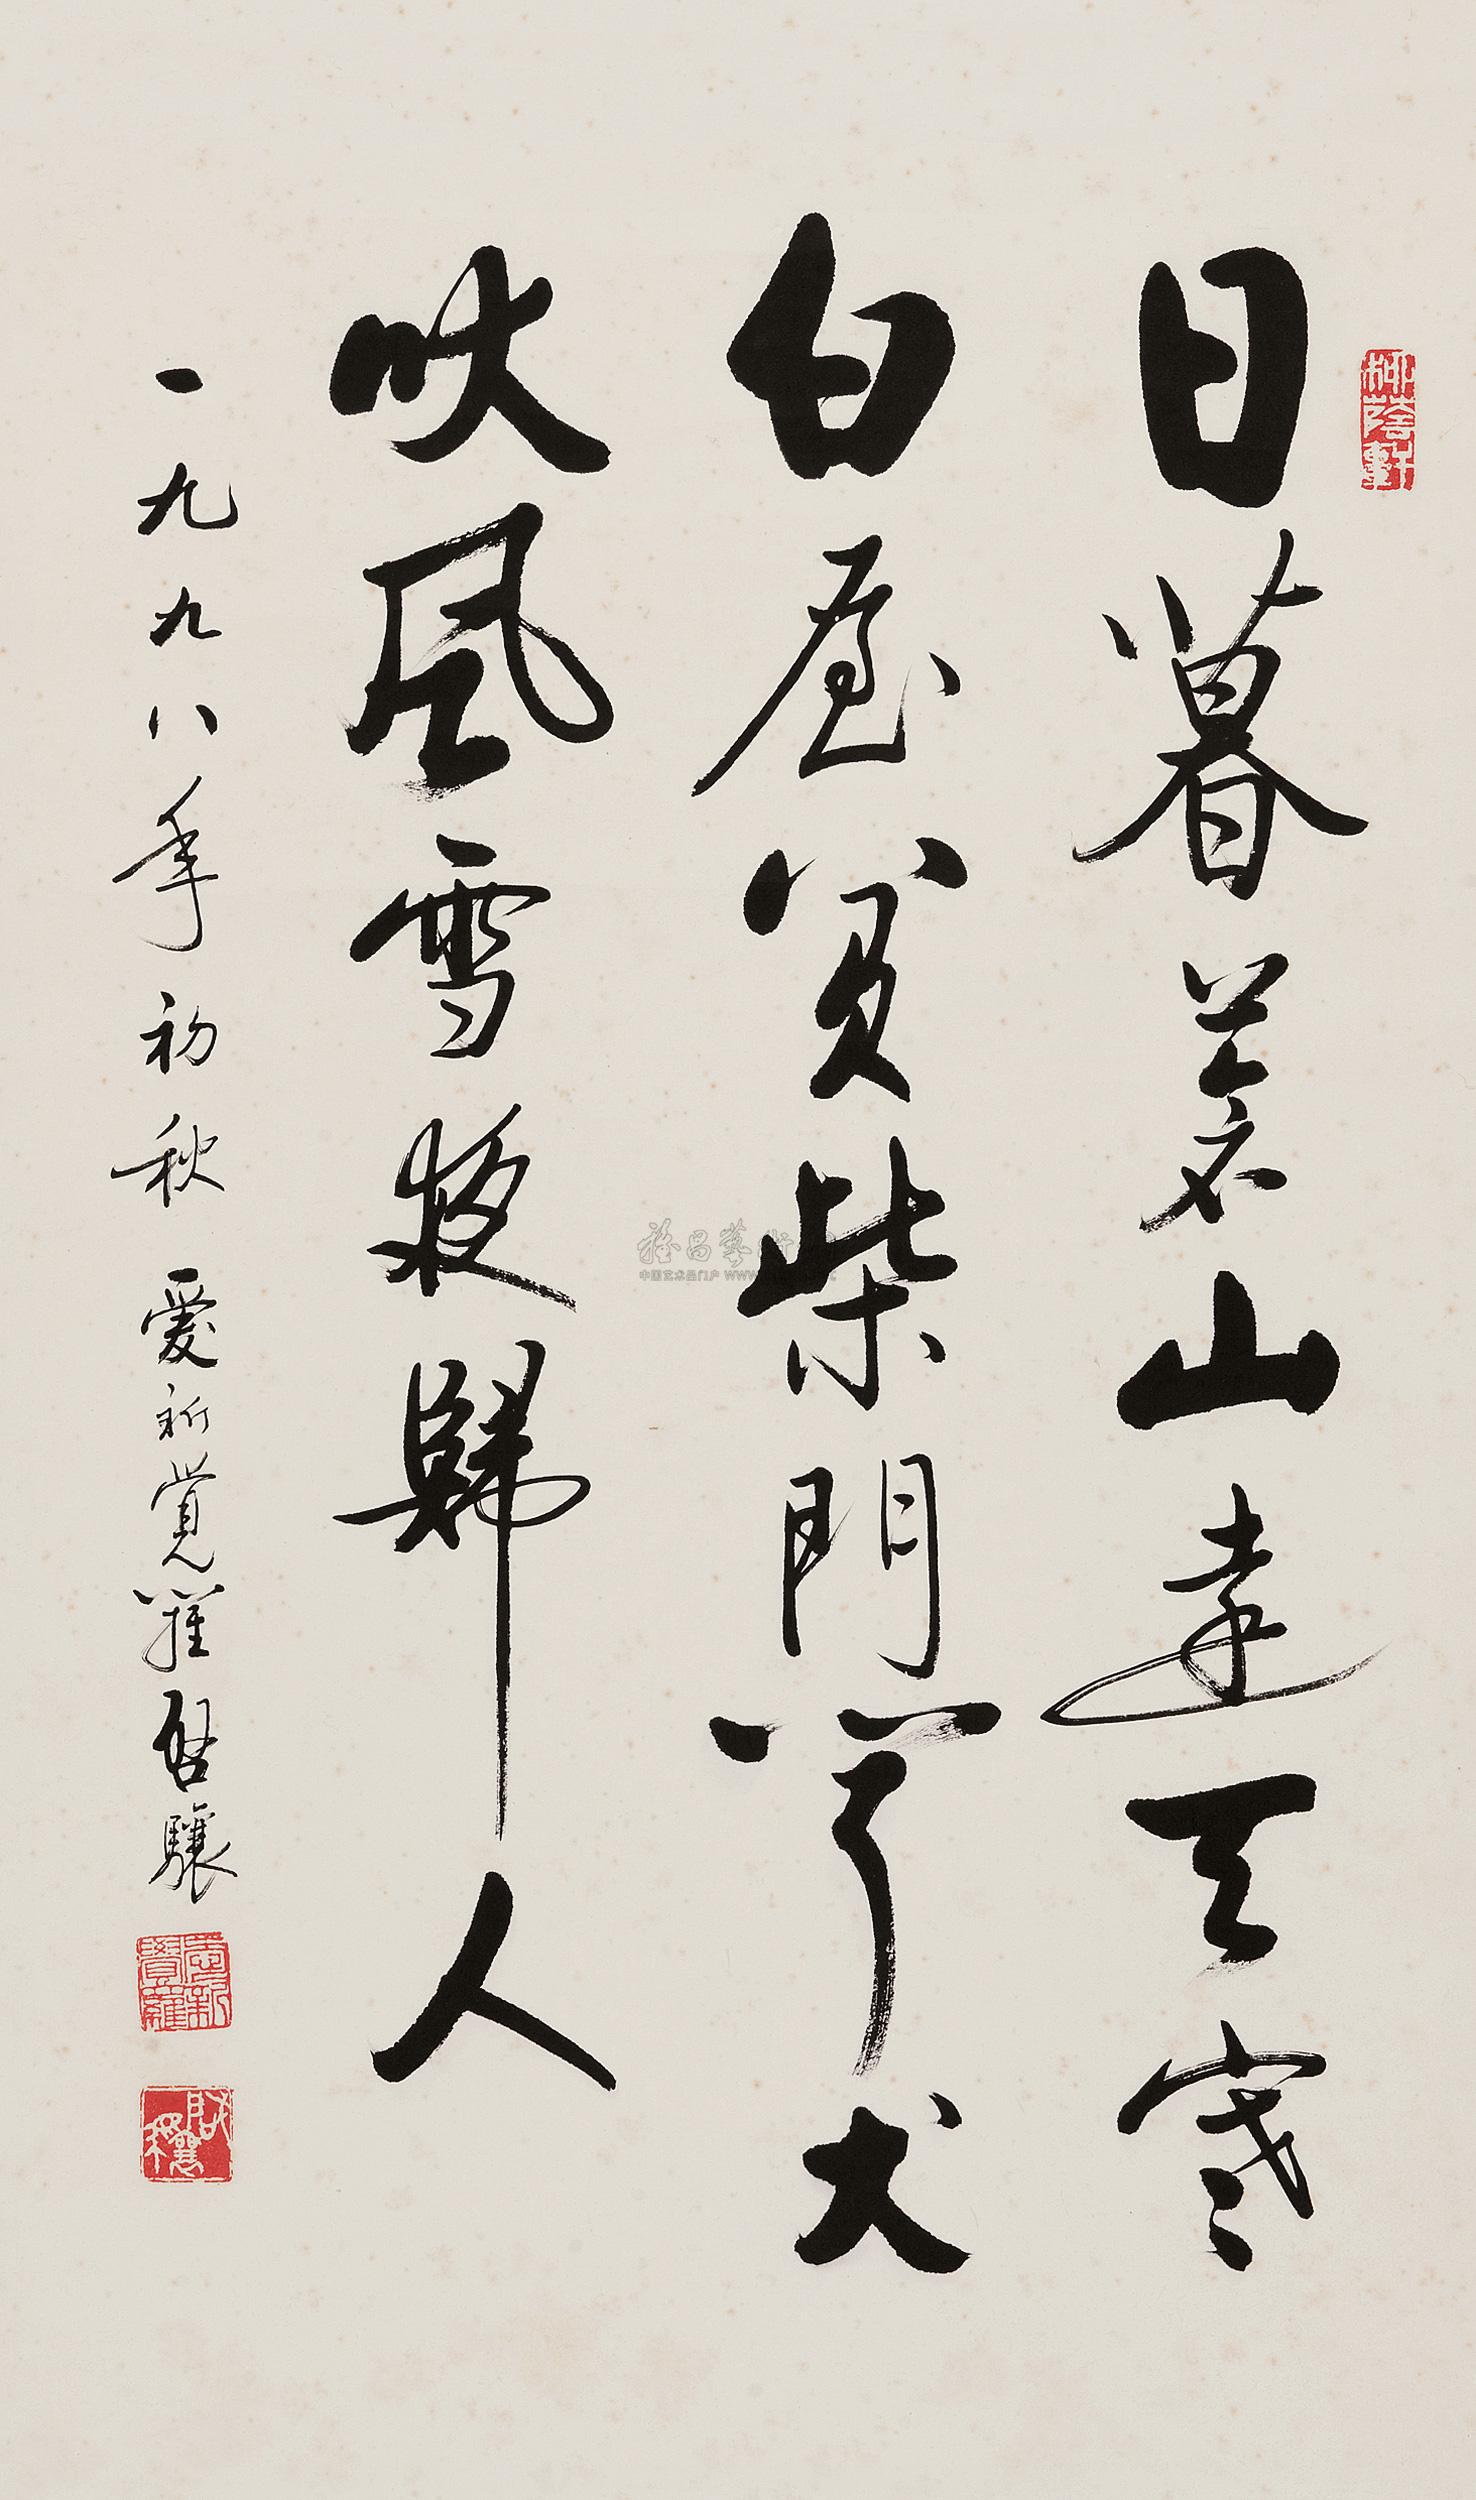 日暮蒼山遠天寒
白屋貧柴門聞犬
吠風雪夜歸人
一九九八年初秋 愛新覺羅啓驤
柳蔭軒
愛新覺羅
啟驤
中国艺术品门户 WWW